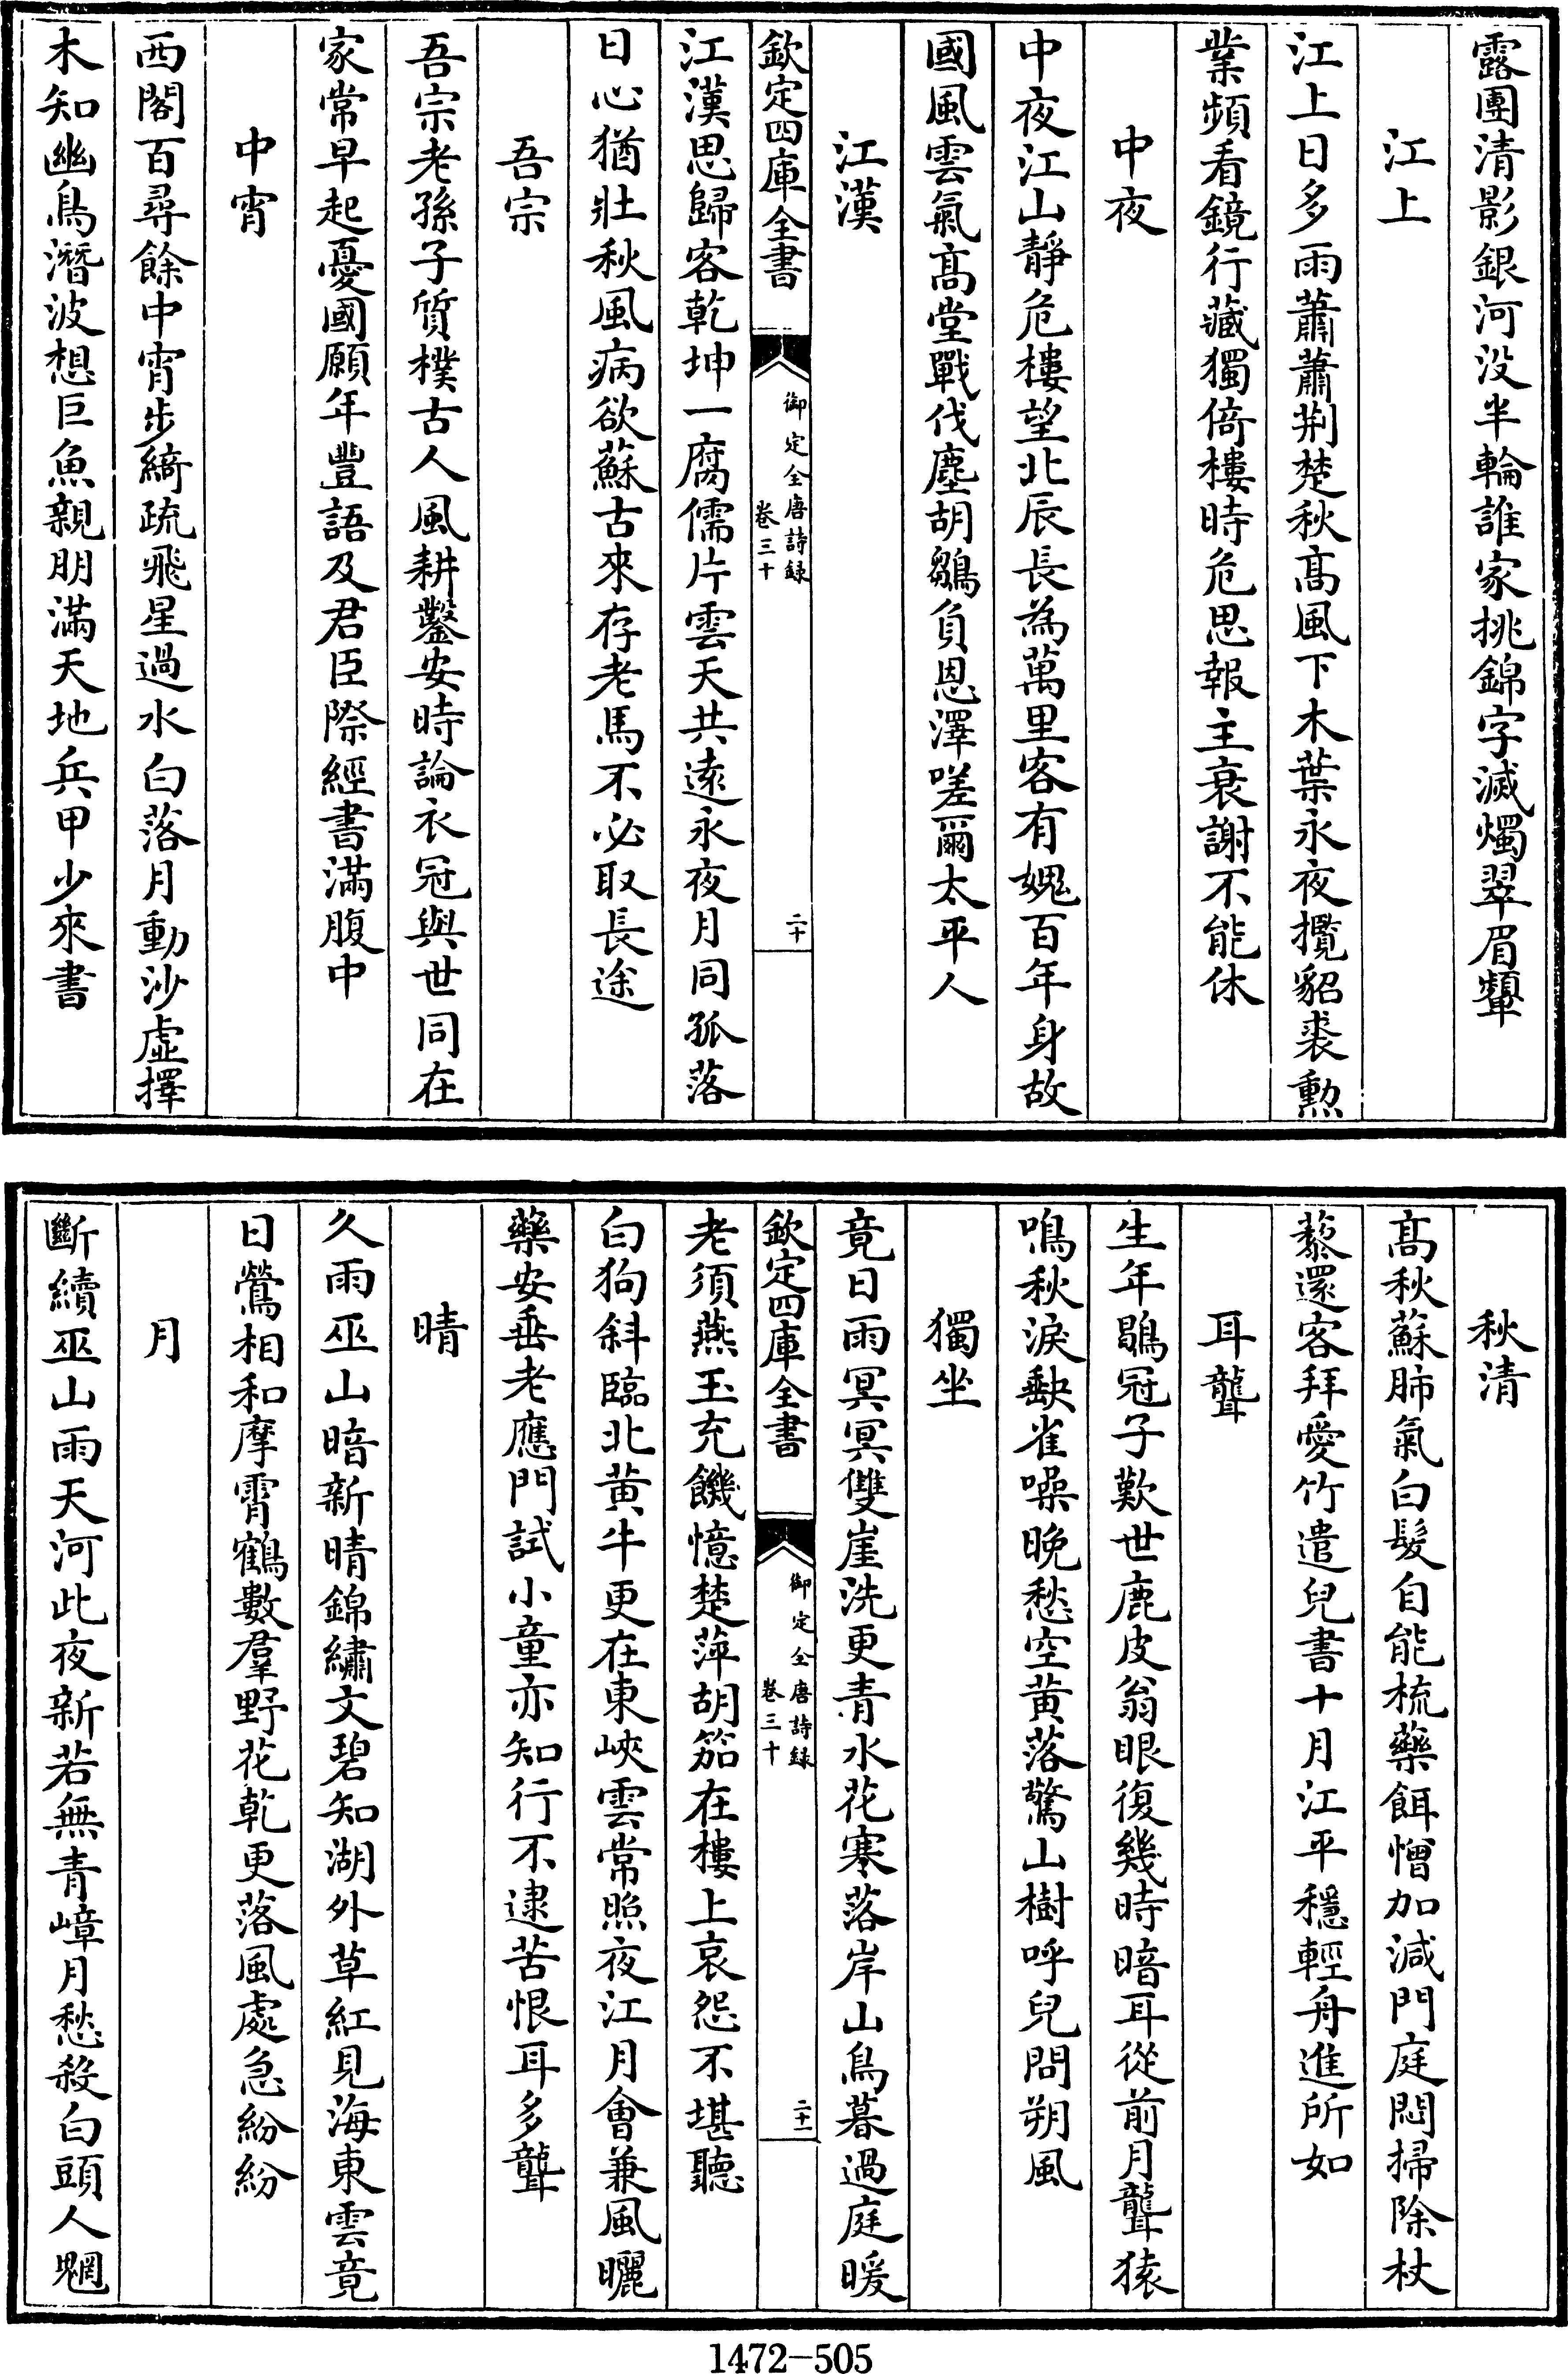 露團清影銀河没半輪誰家挑錦字滅燭翠眉顰
江上
江上日多雨蕭蕭荆楚秋髙風下木葉永夜攬貂裘勲
業頻看鏡行藏獨倚樓時危思報主衰謝不能休
中夜
中夜江山靜危樓望北辰長為萬里客有媿百年身故
國風雲氣髙堂戰伐塵胡雛負恩澤嗟爾太平人
江漢
欽定四庫全書
御定全唐詩録
卷三十
二十
江漢思歸客乾坤一腐儒片雲天共遠永夜月同孤落
日心猶壯秋風病欲蘇古來存老馬不必取長途
吾宗
吾宗老孫子質樸古人風耕鑿安時論衣冠與世同在
家常早起憂國願年豐語及君臣際經書滿腹中
中宵
西閣百尋餘中宵步綺疏飛星過水白落月動沙虛擇
木知幽鳥潛波想巨魚親朋滿天地兵甲少來書
秋清
髙秋蘇肺氣白髮自能梳藥餌憎加減門庭悶掃除杖
藜還客拜愛竹遣兒書十月江平穩輕舟進所如
耳聾
生年鶡冠子歎世鹿皮翁眼復幾時暗耳從前月聾猿
鳴秋淚缺雀噪晚愁空黄落驚山樹呼兒問朔風
獨坐
竟日雨冥冥雙崖洗更青水花寒落岸山鳥暮過庭暖
欽定四庫全書
御定全唐詩録
卷三十
二十一
老須燕玉充饑憶楚萍胡笳在樓上哀怨不堪聽
白狗斜臨北黄牛更在東峽雲常照夜江月會兼風曬
藥安垂老應門試小童亦知行不逮苦恨耳多聾
晴
久雨巫山暗新晴錦繡文碧知湖外草紅見海東雲竟
日鶯相和摩霄鶴數羣野花乾更落風處急紛紛
月
斷續巫山雨天河此夜新若無青嶂月愁殺白頭人魍
1472-505